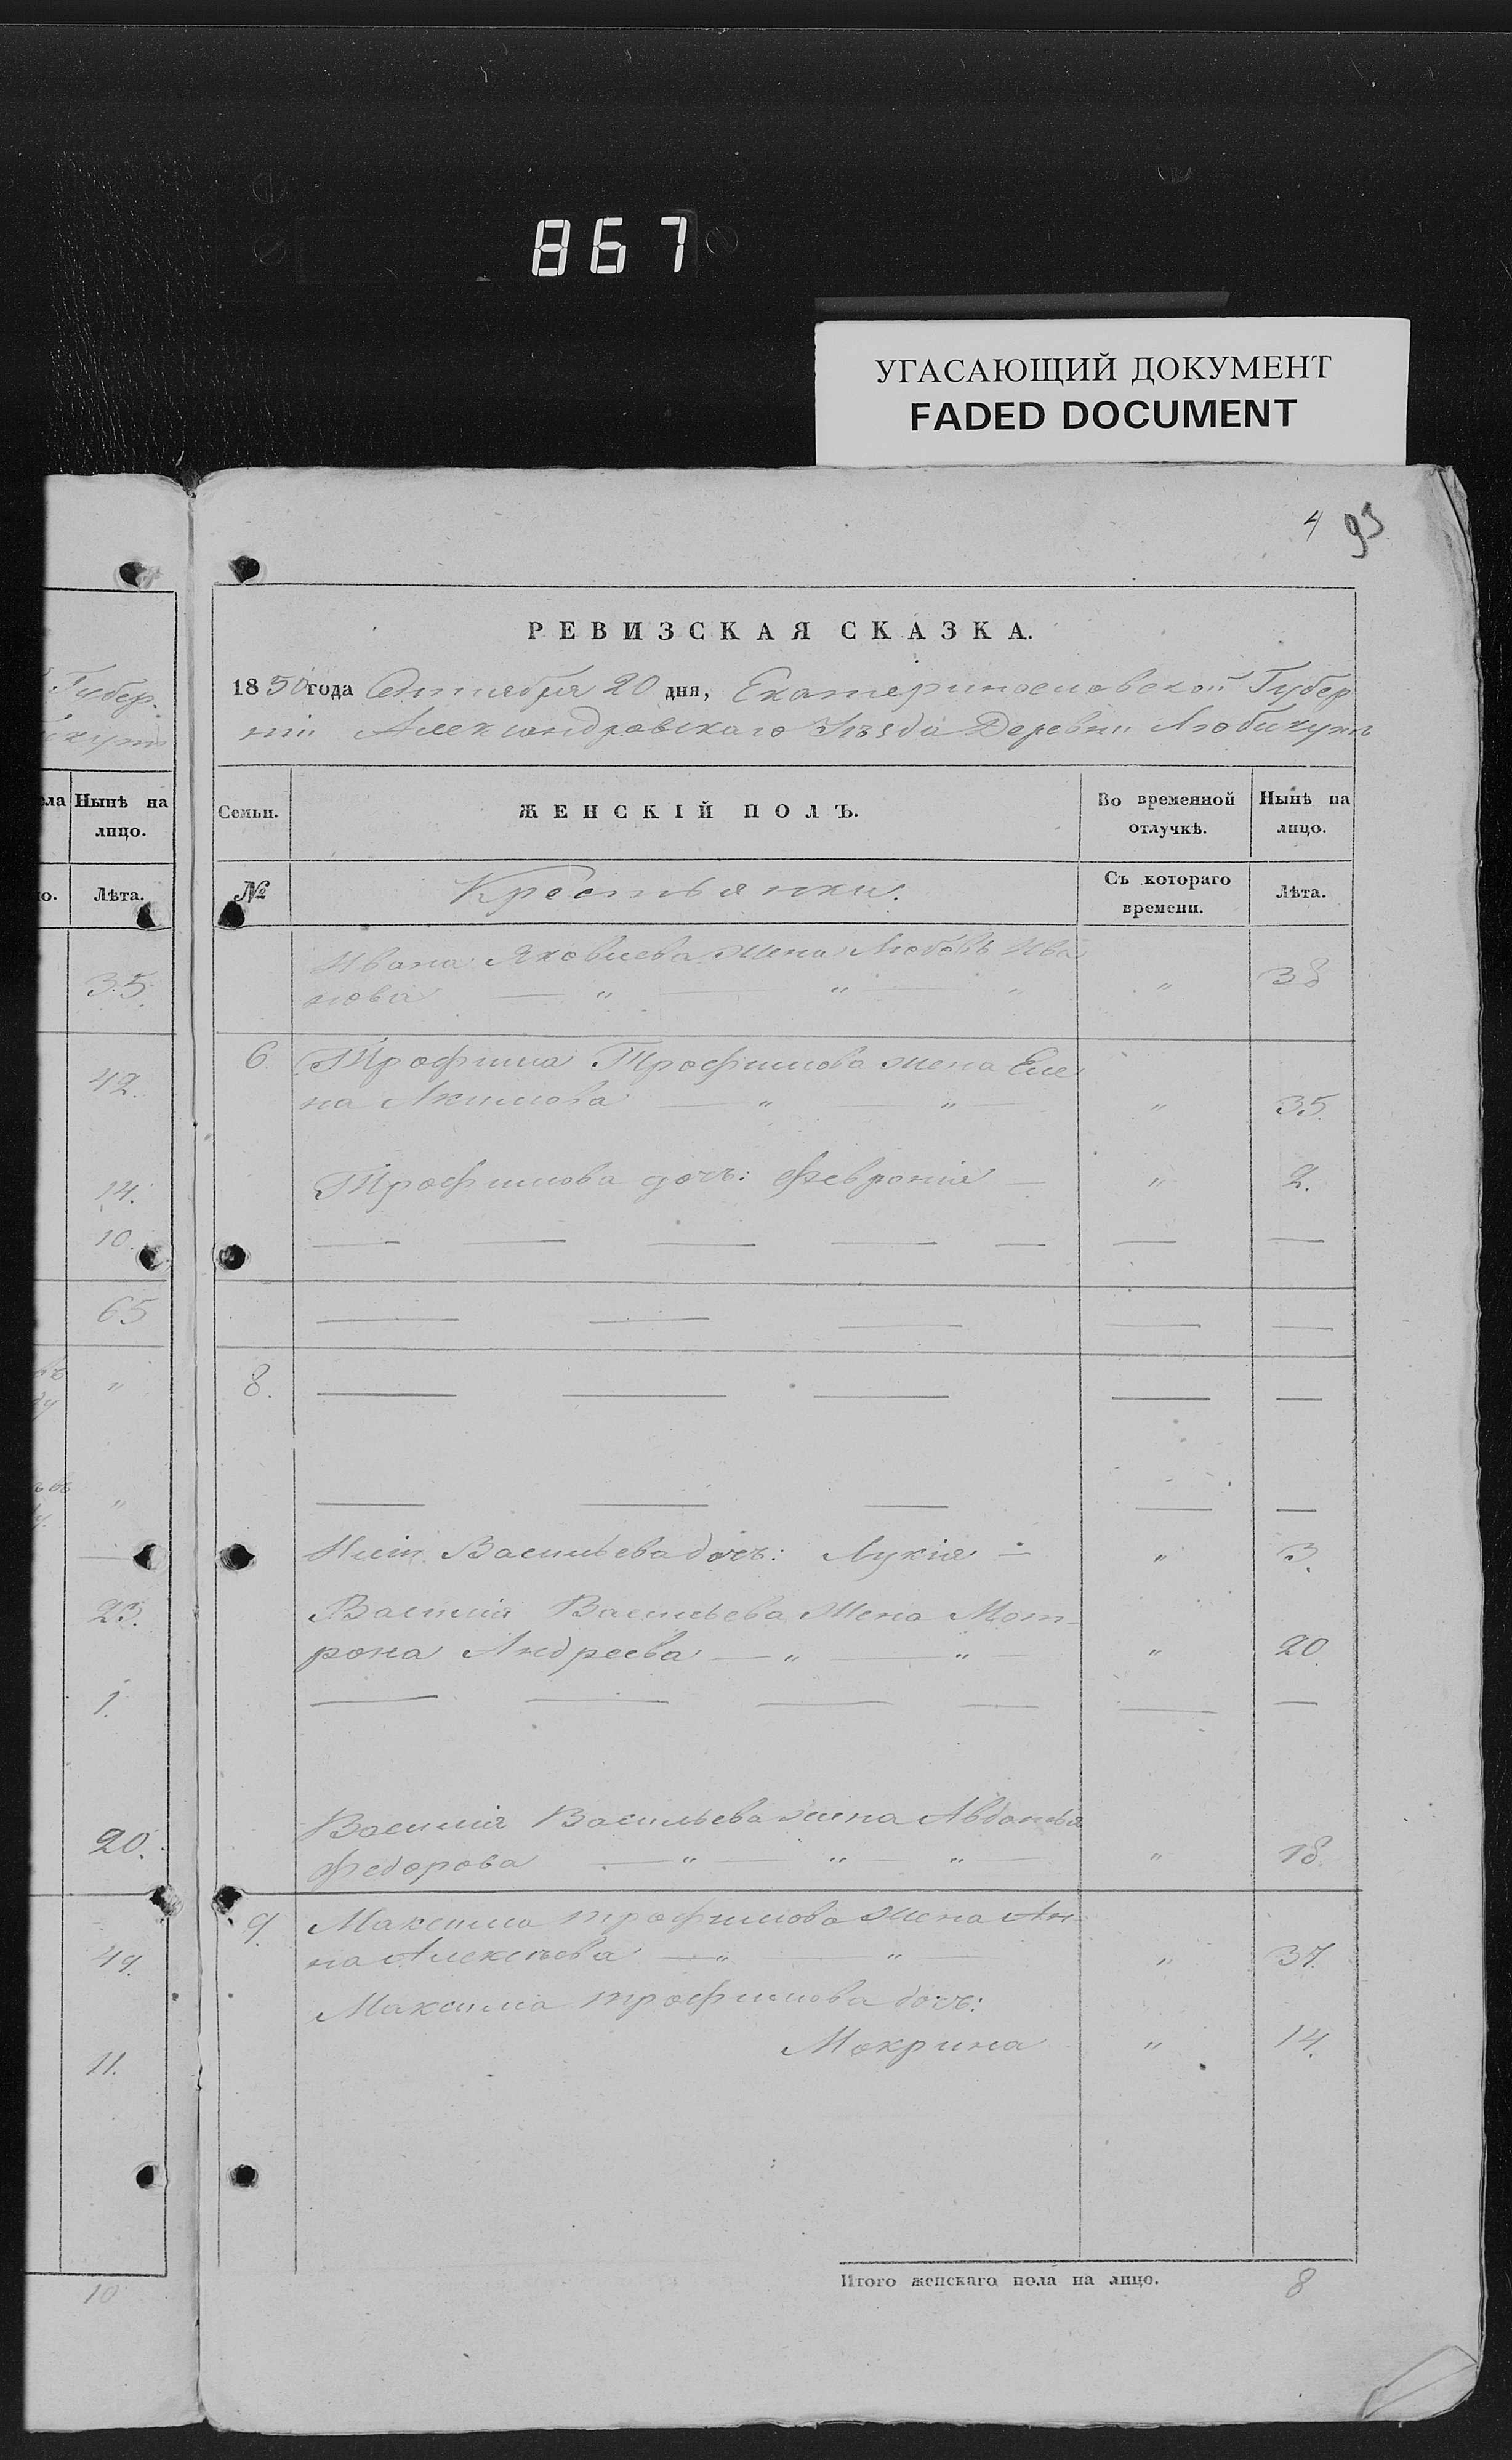 867
УГАСАЮЩИЙ ДОКУМЕНТ
FADED DOCUMENT
4 93
Губер.
ла Нынѣ на
лицо.
о. Лѣта.
35.
42.
14.
10.
65
"
"
23.
1.
20.
49.
11.
10
РЕВИЗСКАЯ СКАЗКА.
1850 года Сентября 20 дня, Екатеринославской Губер
ніи Александровскаго Уѣзда Деревни
Семьи. ЖЕНСКІЙ ПОЛЪ. Во временной отлучкѣ. Нынѣ на лицо.
№ Крестьянки. Съ котораго времени. Лѣта.
Ивана Яковлева жена Любовь Ива
нова — " — " — " " 38
6. Трофима Трофимова жена Еле
на Акимова — " — " — " 35.
Трофимова дочь: Феврония — " 2.
— — — — — — —
— — — — —
8. — — — — —
— — — — —
Васильева дочь: Лукія — " 3.
Василія Васильева жена Мот-
рона Андреева — " — " — " 20.
— — — — — —
Василія Васильева жена Авдотья
Федорова — " — " — " — " 18.
9. Максима Трофимова жена Ан-
на Алексѣева — " " — " 37.
Максима Трофимова дочь:
Мокрина " 14.
Итого женскаго пола на лицо. 8